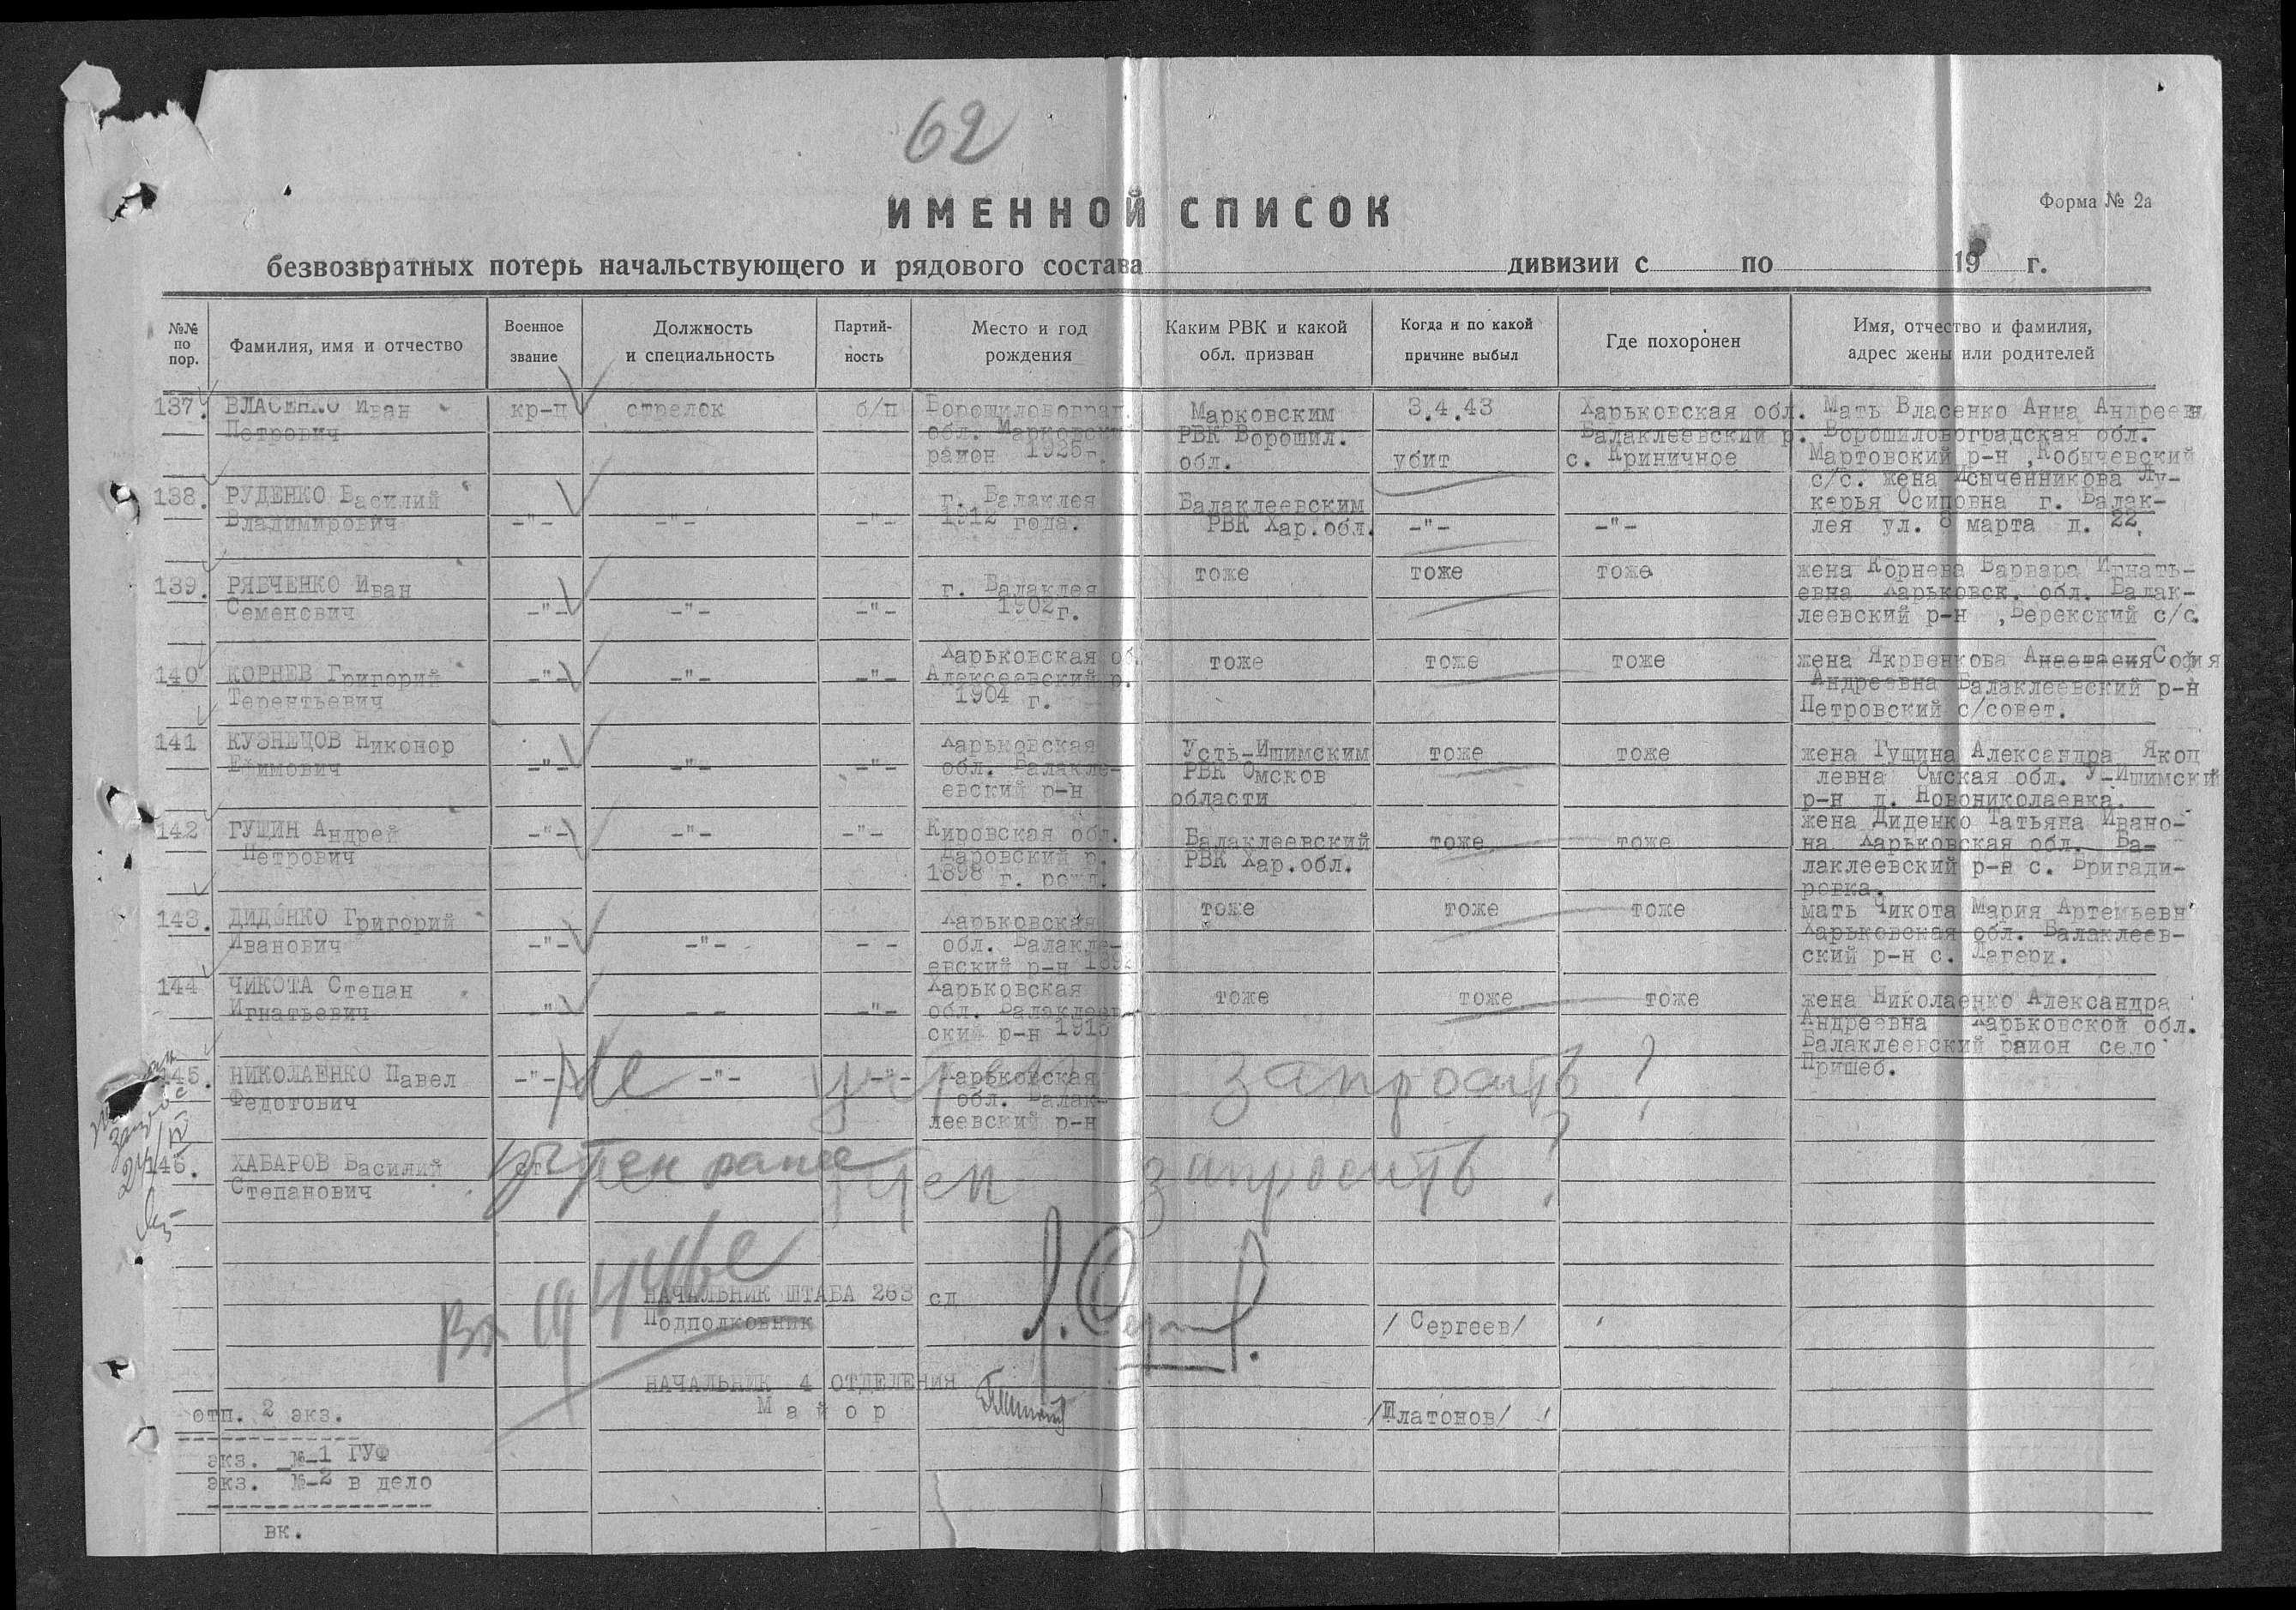 62
ИМЕННОЙ СПИСОК
Форма № 2а
безвозвратных потерь начальствующего и рядового состава дивизии с по 19 г.
№№ по пор.
Фамилия, имя и отчество
Военное звание
Должность и специальность
Партий-ность
Место и год рождения
Каким РВК и какой обл. призван
Когда и по какой причине выбыл
Где похоронен
Имя, отчество и фамилия, адрес жены или родителей
137. ВЛАСЕНКО Иван кр-ц стрелок б/п Ворошиловоград. Марковским 3.4.43 Харьковская обл. Мать Власенко Анна Андреевн
Петрович обл. Марковский РВК Ворошил. Балаклеевский р. Ворошиловоградская обл.
район 1925г. обл. убит с. Криничное Мартовский р-н ,Кобычевский
138. РУДЕНКО Василий г. Балаклея Балаклеевским с/с. жена Исыченникова Лу-
Владимирович -"- -"- -"- 1912 года. РВК Хар.обл. -"- -"- керья Осиповна г. Балак-
лея ул. 8 марта д. 22.
139. РЯБЧЕНКО Иван г. Балаклея тоже тоже тоже жена Корнева Варвара Игнать-
Семенович -"- -"- -"- 1902г. евна Харьковск. обл. Балак-
леевский р-н ,Верекский с/с.
140 КОРНЕВ Григорий -"- -"- -"- Харьковская об. тоже тоже тоже жена Яковенкова Анастасия София
Терентьевич Алексеевский р. Андреевна Балаклеевский р-н
1904 г. Петровский с/совет.
141 КУЗНЕЦОВ Никонор Харьковская Усть-Ишимским тоже тоже жена Гущина Александра Якоц
Ефимович -"- -"- -"- обл. Балакле- РВК Омсков левна Омская обл. У-Ишимский
евский р-н области р-н д. Новониколаевка.
142 ГУЩИН Андрей -"- -"- -"- Кировская обл. Балаклеевский тоже тоже жена Диденко Татьяна Ивано-
Петрович Даровский р. РВК Хар.обл. на Харьковская обл. Ба-
1898 г. рожд. лаклеевский р-н с. Бригади-
ровка.
143. ДИДЕНКО Григорий Харьковская тоже тоже тоже мать Чикота Мария Артемьевн
Иванович -"- -"- - - обл. Балакле- Харьковская обл. Балаклеев-
евский р-н ский р-н с. Лагери.
144 ЧИКОТА Степан Харьковская тоже тоже тоже жена Николаенко Александра
Игнатьевич -"- - - -"- обл. Балаклеев- Андреевна Харьковской обл.
ский р-н 1918 Балаклеевский район село
Пришеб.
145. НИКОЛАЕНКО Павел -"- -"- -"- Харьковская запросить ?
Федотович обл. Балак-
леевский р-н
146. ХАБАРОВ Василий запросить ?
Степанович
НАЧАЛЬНИК ШТАБА 263 сд
Подполковник /Сергеев/
НАЧАЛЬНИК 4 ОТДЕЛЕНИЯ
Майор /Платонов/
отп. 2 экз.
экз. №-1 ГУФ
экз. №-2 в дело
вк.